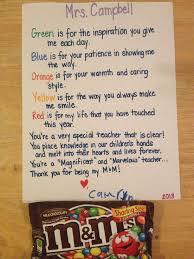 Mrs. Campbell
Green is for the inspiration you give
me each day.
Blue is for your patience in showing me
the way.
Orange is for your warmth and caring
style.
Yellow is for the way you always make
me smile.
Red is for my life that you have touched
this year.
You're a very special teacher that is clear!
You place knowledge in our children's hands
and melt into their hearts and lives forever.
You're a "Magnificent" and "Marvelous" teacher...
Thank you for being my M&M!
2013
MILK CHOCOLATE
Sharing Size
m&m's